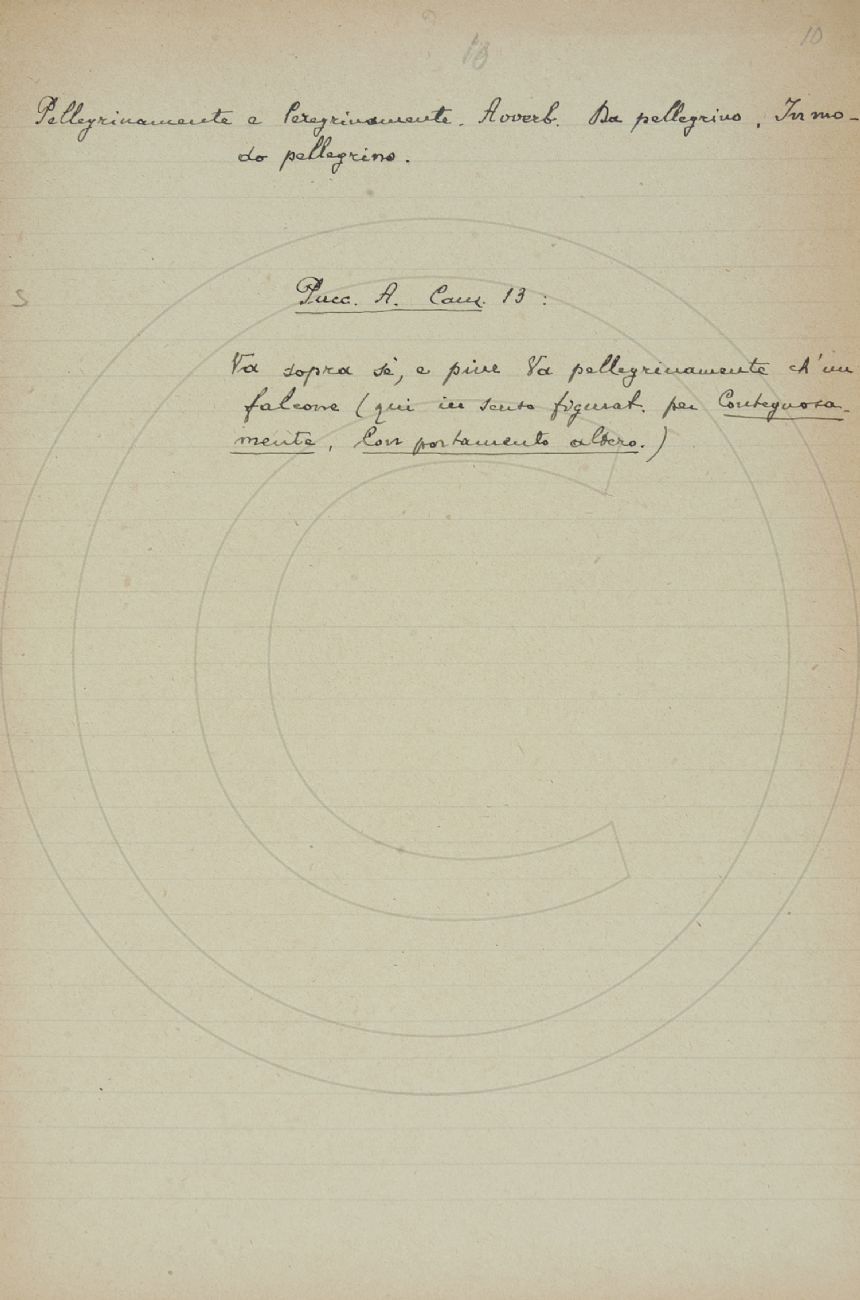 10
10
Pellegrinamente e Peregrinamente. Avverb. Da pellegrino, In mo-
do pellegrino.
S
Pucc. A. Canz. 13 :
Va sopra sè, e pive va pellegrinamente ch'un
falcone (qui in senso figurat. per Contegnosa-
mente, Con portamento altero.)